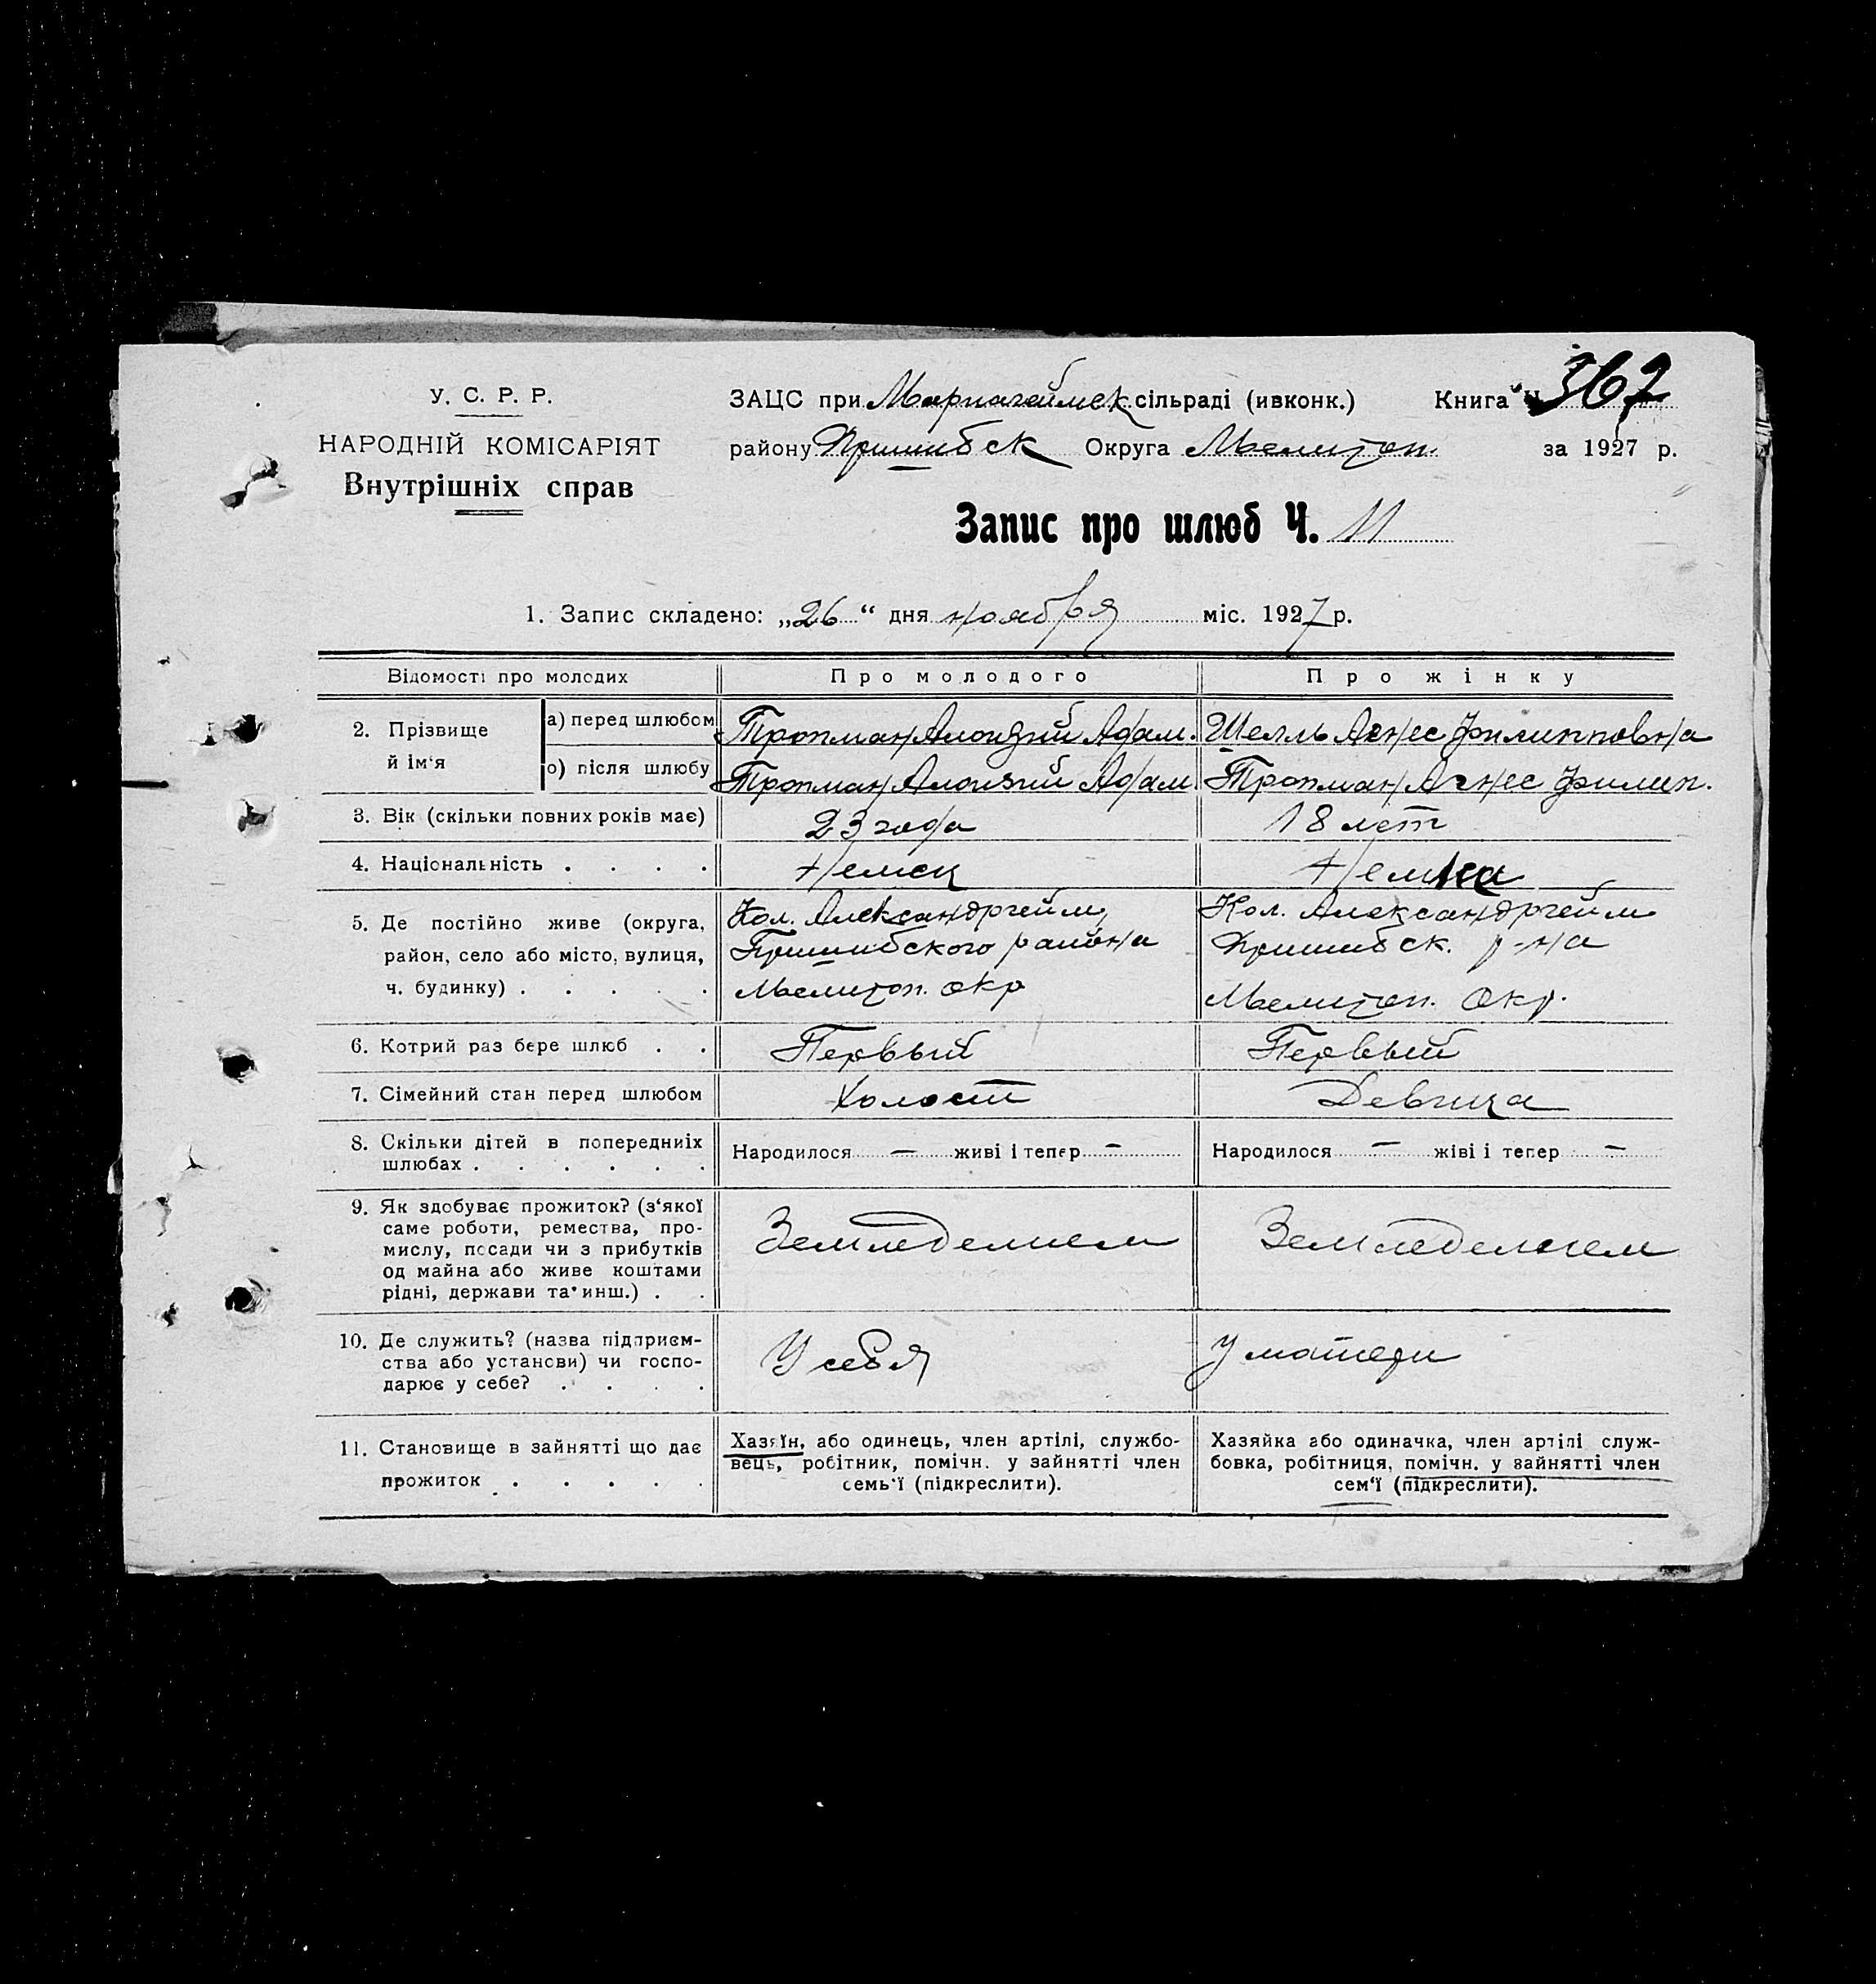 У. С. Р. Р.
НАРОДНІЙ КОМІСАРІЯТ
Внутрішніх справ
ЗАЦС при Мариагеймск сільраді (ивконк.) Книга Ч. 367
району Пришибск Округа Мелитоп. за 1927 р.
Запис про шлюб Ч. 11
1. Запис складено: „26“ дня ноября міс. 1927 р.
Відомості про молодих Про молодого Про жінку
2. Прізвище й ім‘я
а) перед шлюбом Тропман Алоизий Адам. Шелль Агнес Филипповна
о) після шлюбу Тропман Алоизий Адам Тропман Агнес Филип.
3. Вік (скільки повних років має) 23 года 18 лет
4. Національність . . . . Немец Немка
5. Де постійно живе (округа,
район, село або місто, вулиця,
ч. будинку) . . . . .
Кол. Александргейм,
Пришибского района
Мелитоп. окр
Кол. Александргейм
Пришибск. р-на
Мелитоп. Окр.
6. Котрий раз бере шлюб . . Первый Первый
7. Сімейний стан перед шлюбом Холост Девица
8. Скільки дітей в попередниіх
шлюбах . . . . . .
Народилося — живі і тепер —
Народилося — жіві і тепер —
9. Як здобуває прожиток? (з‘якої
саме роботи, ремества, про-
мислу, посади чи з прибутків
од майна або живе коштами
рідні, держави та инш.) . .
Земледелием
Земледелием
10. Де служить? (назва підприєм-
ства або установи) чи госпо-
дарює у себе? . . . .
У себя
У матери
11. Становище в зайнятті що дає
прожиток . . . . .
Хазяїн, або одинець, член артілі, службо-
вець, робітник, помічн. у зайнятті член
семь‘ї (підкреслити).
Хазяйка або одиначка, член артілі служ-
бовка, робітниця, помічн. у зайнятті член
сем‘ї (підкреслити).